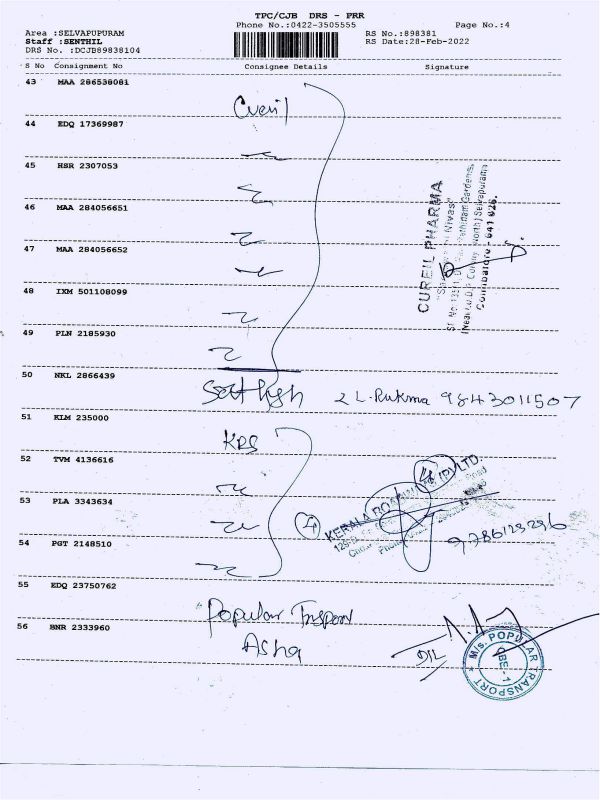 TPC/CJB DRS - PRR
Phone No.:0422-3505555
Page No.:4
Area :SELVAPUPURAM
Staff :SENTHIL
DRS No. :DCJB89838104
RS No.:898381
RS Date:28-Feb-2022
S No Consignment No Consignee Details Signature
43 MAA 286538081
Cureil
44 EDQ 17369987
45 HSR 2307053
46 MAA 284056651
47 MAA 284056652
48 IXM 501108099
49 PLN 2185930
CUREIL PHARMA
Nivas"
Coimbatore - 641 026.
50 NKL 2866439
Sathish 2 L. Rukma 9843011507
51 KLM 235000
KRS
52 TVM 4136616
53 PLA 3343634
54 PGT 2148510
4
4
KERALA ROADWAYS (P) LTD.
9786129296
55 EDQ 23750762
Popular Trnsport
56 BNR 2333960
Asha
M/s. POPULAR TRANSPORT
CBE-1